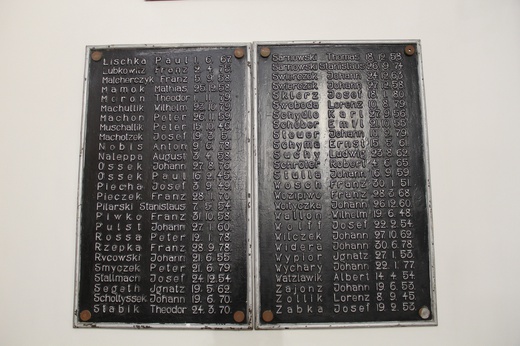 Lischka Paul 1. 6. 67.
Lubkowitz Franz
Malcherczyk Franz
Mamok Mathias 25.12.58
Maran Theodor
Machullik Wilhelm
Machon Peter 26.11.59.
Muschallik Peter
Macholzek Josef 19. 3. 51.
Nobis Anton 9. 6. 78.
Naleppa August 3. 4. 58.
Ossek Johann 27. 8. 76.
Ossek Paul 16. 2. 45.
Piecha Josef 3. 9. 49.
Pieczek Franz 28. 1. 70.
Pilarski Stanislaus 7. 5. 54.
Piwko Franz 31. 10. 58.
Pulst Johann 27. 1. 60.
Rossa Peter 12. 1. 78.
Rzepka Franz 28. 9. 78.
Rycowski Johann 21. 6. 55.
Smyczek Peter 21. 6. 79.
Stallmach Josef 24. 12. 54.
Segeth Jgnatz 19. 5. 62.
Scholtyssek Johann 19. 6. 70.
Stabik Theodor 24. 3. 70.
Sarnowski Thomas 18. 12. 58.
Sarnowski Stanislaus 26. 9. 74
Swierczek Johann 24. 12. 63.
Swierczek Johann 27. 12. 58.
Skierz Josef 18. 1. 80.
Swoboda Lorenz
Schydlo Karl 27. 9. 56.
Schober Emil
Stauer Johann
Schyma Ernst 15. 5. 61.
Suchy Ludwig
Schröter Robert 4. 6. 65.
Stalla Johann 16. 1. 59.
Woson Franz 30. 1. 51.
Woziwo Franz
Wonyczka Johann 26. 12. 60.
Wallon Wilhelm 19. 6. 48.
Wolff Josef 22. 2. 54.
Wilczek Johann 27. 10. 62.
Widera Johann 30. 6. 78.
Wypior Jgnatz 27. 1. 53.
Wychary Johann 22. 1. 77
Watzlawik Albert 14. 4. 54.
Zajonz Johann 19. 6. 53.
Zollik Lorenz 8. 9. 45.
Zabka Josef 19. 2. 53.